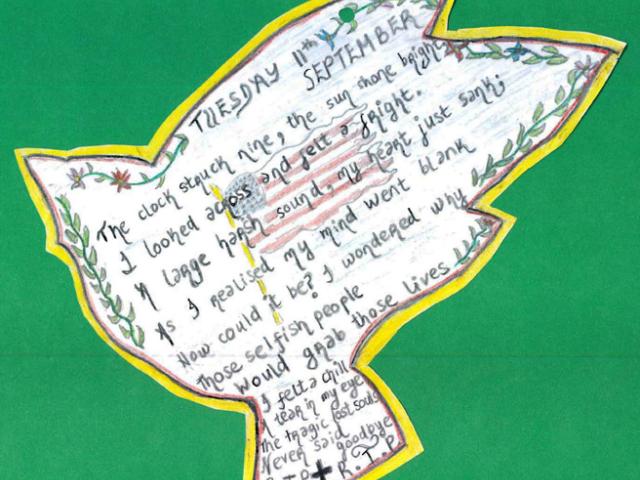 TUESDAY 11th SEPTEMBER
The clock struck nine, the sun shone bright
I looked across and felt a fright.
A large harsh sound, my heart just sank;
As I realised my mind went blank
How could it be? I wondered why
Those selfish people
Would grab those lives
I felt a chill
A tear in my eye
The tragic lost souls
Never said goodbye
R.I.P